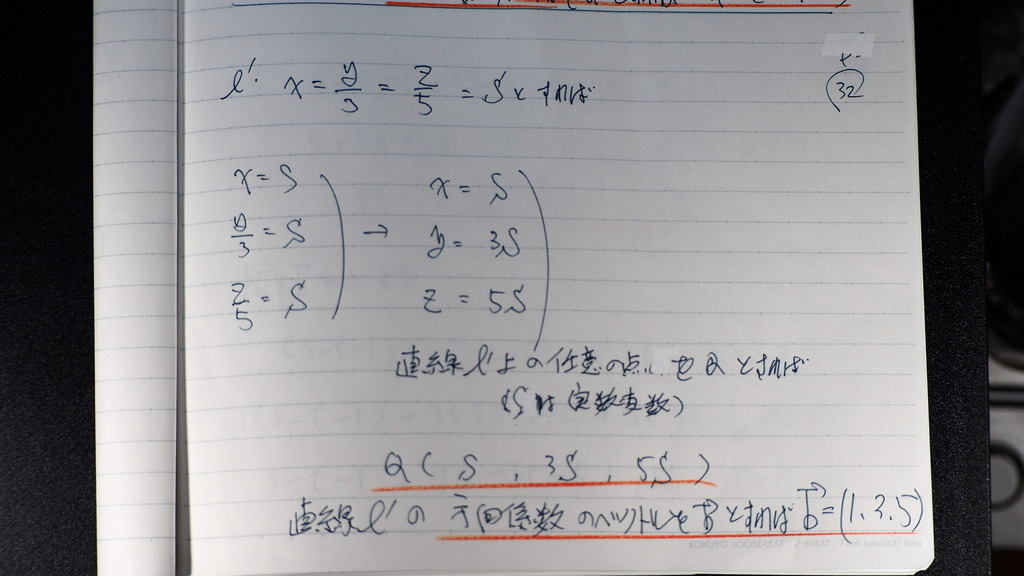 l'. x = y/3 = z/5 = s とすれば
32
x = s → x = s
y/3 = s y = 3s
z/5 = s z = 5s
直線l'上の任意の点をQとすれば
(sは実数変数)
Q( s , 3s , 5s )
直線l'の方向係数のベクトルをb→とすればb→=(1.3.5)